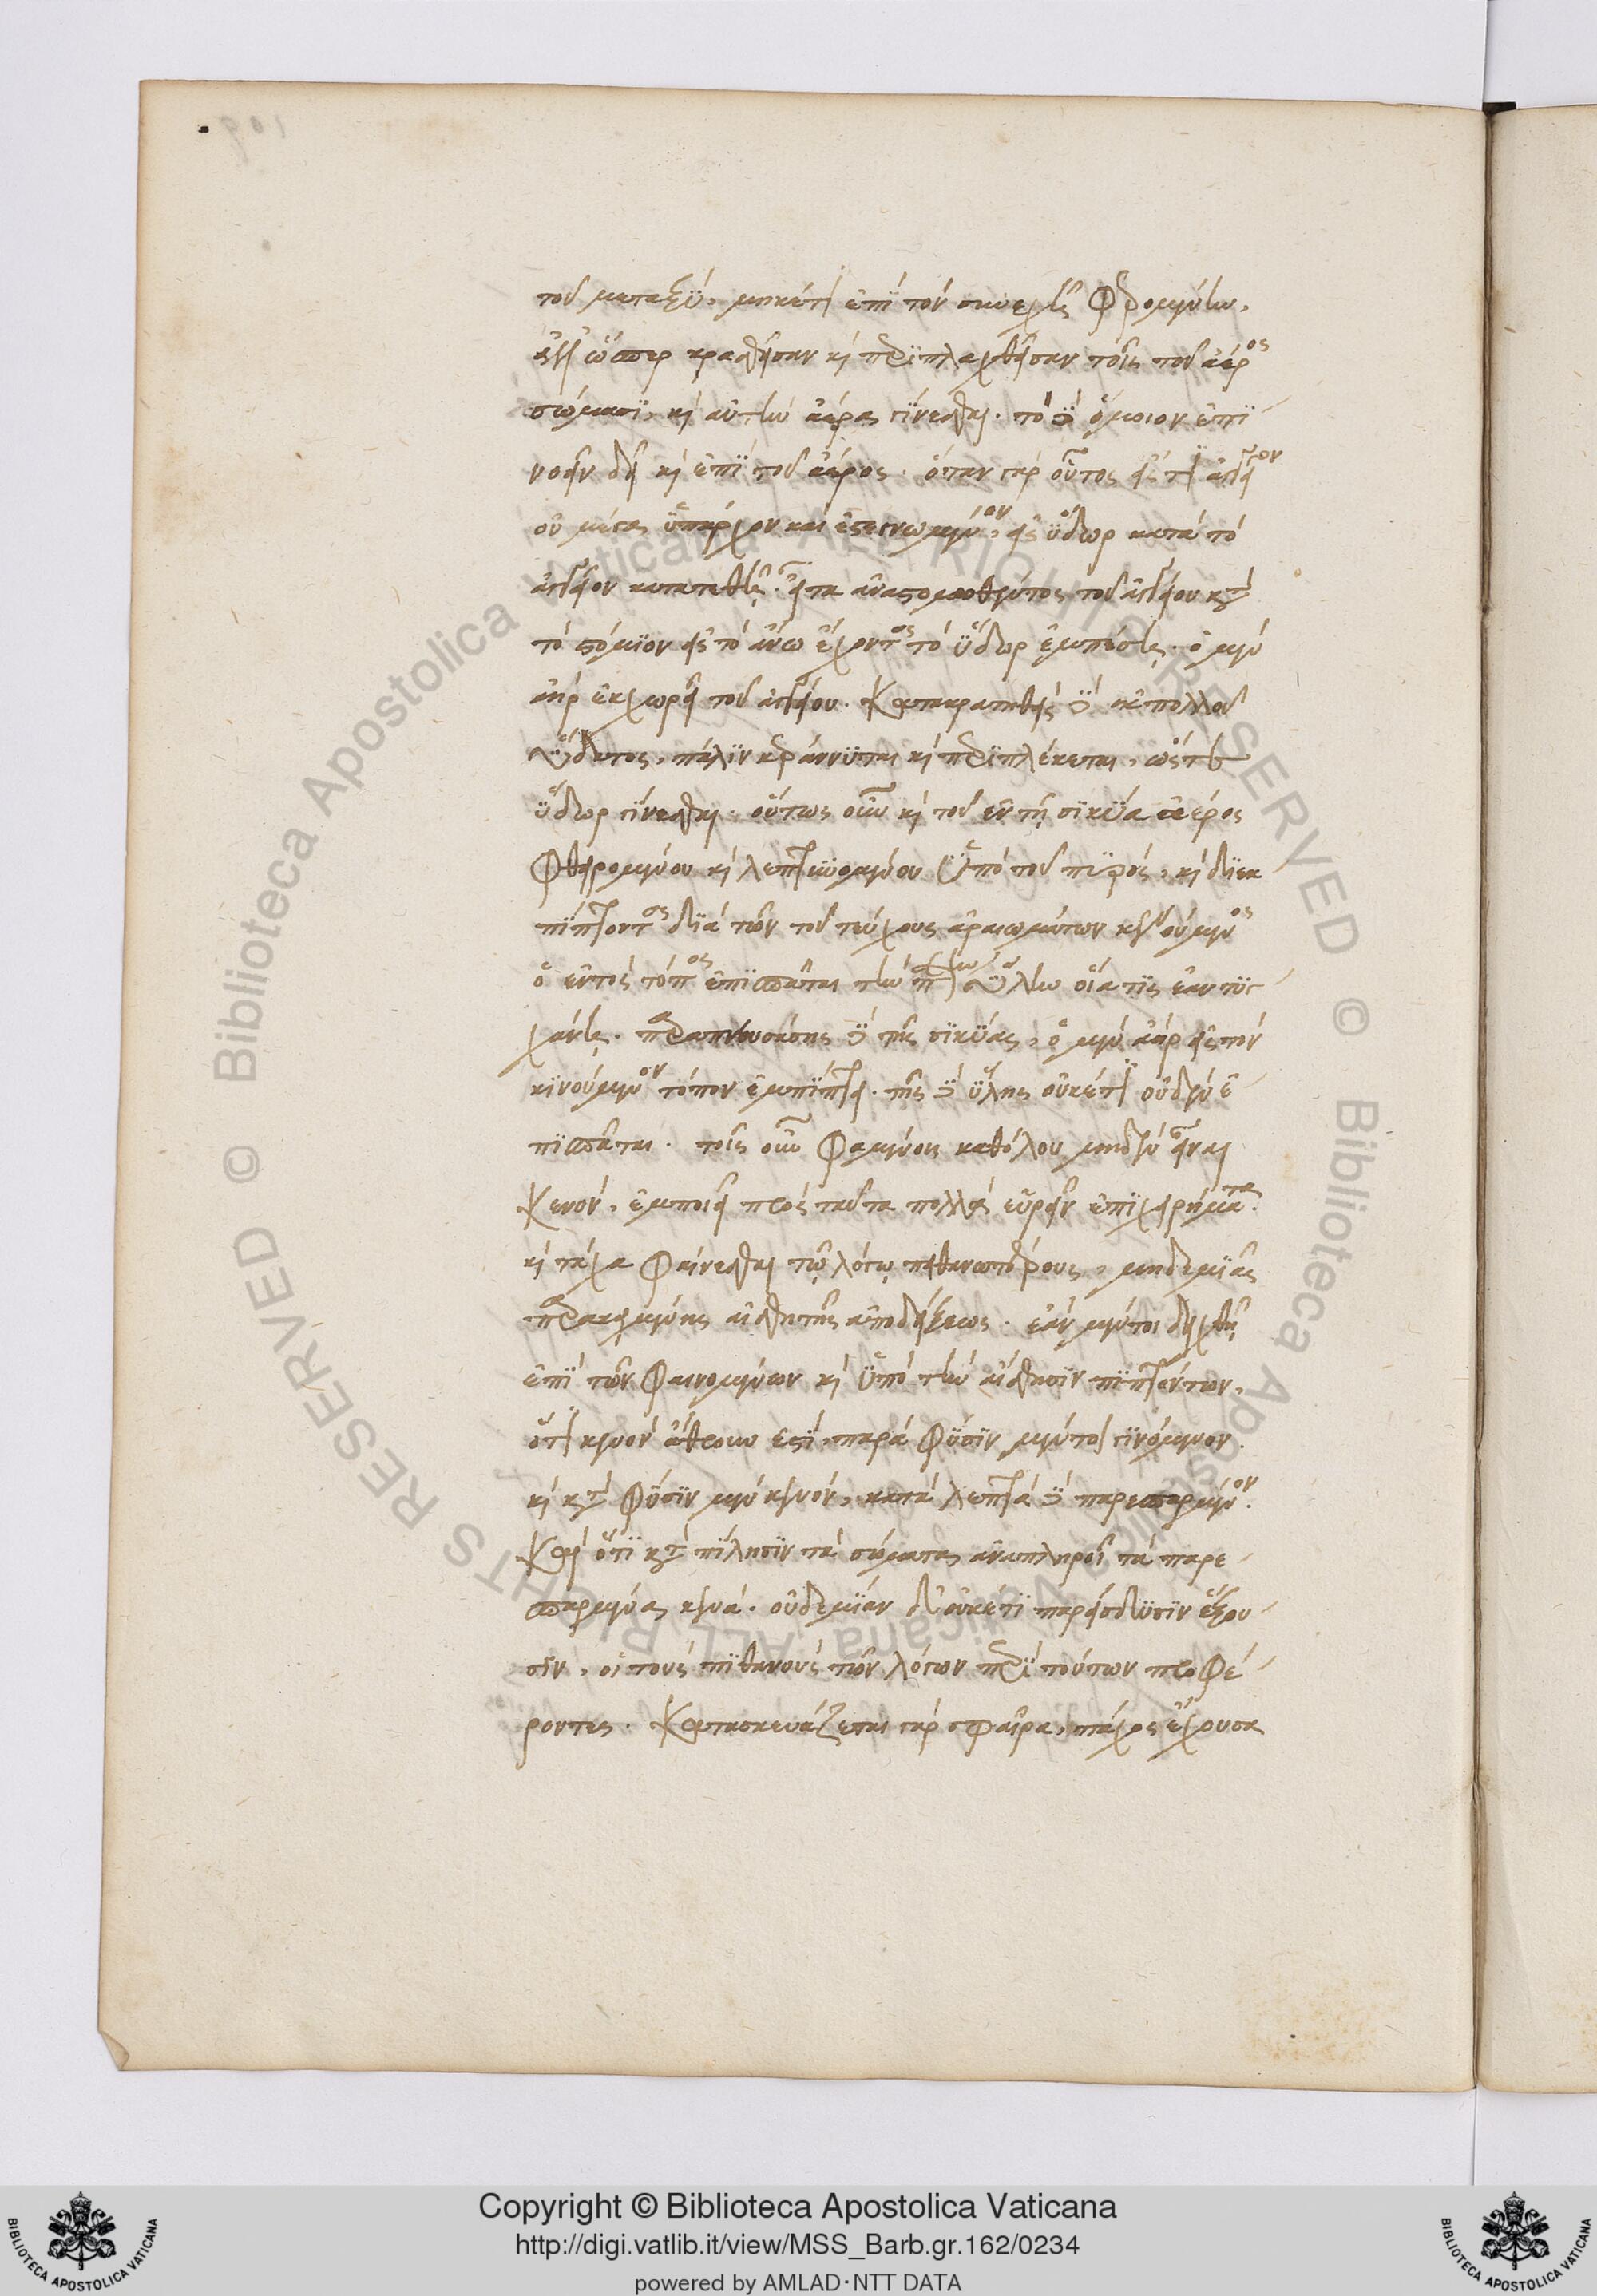 τοῦ μεταξὺ, μηκέτι ἐπὶ τὸν συνεχῆ φερομένην,
ἀλλ' ὥσπερ κρατηθεῖσαν καὶ περιπλεχθεῖσαν τοῖς τοῦ ἀέρος
σώμασι, καὶ αὐτὴν ἀέρα γίνεσθαι. τὸ δὲ ὅμοιον ἐπι
νοεῖν δεῖ καὶ ἐπὶ τοῦ ἀέρος. ὅταν γὰρ οὗτος εἴς τι ἀγγεῖον
οὐ μέγα ὑπάρχον καὶ ἐστεγνωμένον, εἰς ὕδωρ κατὰ τὸ
ἀγγεῖον κατατεθῇ. εἶτα ἀναστομωθέντος τοῦ ἀγγείου κατὰ
τὸ στόμιον εἰς τὸ ἄνω ἔχοντος τὸ ὕδωρ ἐμπέσῃ. ὁ μὲν
ἀὴρ ἐκχωρεῖ τοῦ ἀγγείου. κατακρατηθεὶς δὲ ἐκ πολλοῦ
ὕδατος, πάλιν κεράννυται καὶ περιπλέκεται, ὥστε
ὕδωρ γίνεσθαι. οὕτως οὖν καὶ τοῦ ἐν τῇ σικύα ἀέρος
φθειρομένου καὶ λεπτυνομένου ὑπὸ τοῦ πυρὸς, καὶ διεκ
πίπτοντος διὰ τῶν τοῦ τεύχους ἀραιωμάτων κενούμενος
ὁ ἐντὸς τόπος ἐπισπᾶται τὴν ὕλην οἵα τις ἐὰν τυγ
χάνῃ. παραπνευσάσης δὲ τῆς σικύας, ὁ μὲν ἀὴρ εἰς τὸν
κινούμενον τόπον ἐμπίπτει. τῆς δὲ ὕλης οὐκέτι οὐδὲν ἐ
πισπᾶται. τοῖς οὖν φαμένοις καθόλου μηδὲν εἶναι
κενόν, ἐμποιεῖ πρὸς ταῦτα πολλὰ εὑρεῖν ἐπιχειρήματα.
καὶ τάχα φαίνεσθαι τῷ λόγῳ πιθανωτέρους, μηδεμιᾶς
παρακειμένης αἰσθητῆς ἀποδείξεως. ἐὰν μέντοι δειχθῇ
ἐπὶ τῶν φαινομένων καὶ ὑπὸ τὴν αἴσθησιν πιπτόντων,
ὅτι κενὸν ἄθρουν ἐστὶ, παρὰ φύσιν μέντοι γινόμενον.
καὶ κατὰ φύσιν μὲν κενὸν, κατὰ λεπτὰ δὲ παρεσπαρμένον.
καὶ ὅτι κατὰ πίλησιν τὰ σώματα ἀναπληροῖ τὰ παρε
σπαρμένα κενά. οὐδεμίαν δ' οὐκέτι παρείσδυσιν ἕξου
σιν, οἱ τοὺς πιθανοὺς τῶν λόγων περὶ τούτων προφέ
ροντες. κατασκευάζεται γὰρ σφαῖρα, πάχος ἔχουσα
Copyright © Biblioteca Apostolica Vaticana
http://digi.vatlib.it/view/MSS_Barb.gr.162/0234
powered by AMLAD·NTT DATA